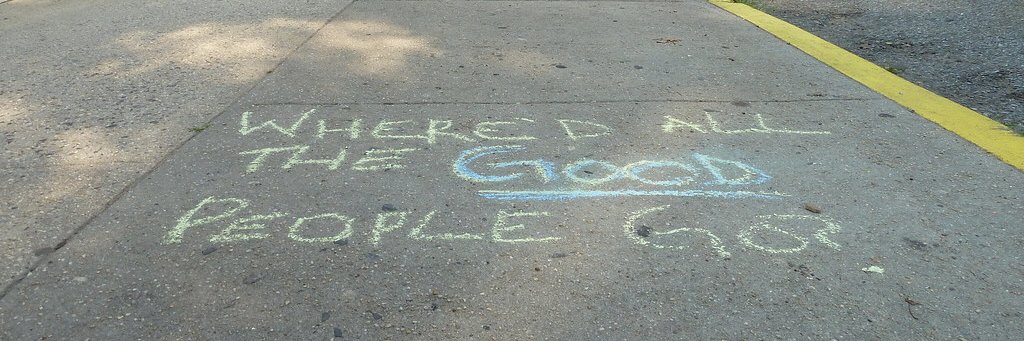 WHERE'D ALL
THE GOOD
PEOPLE GO?